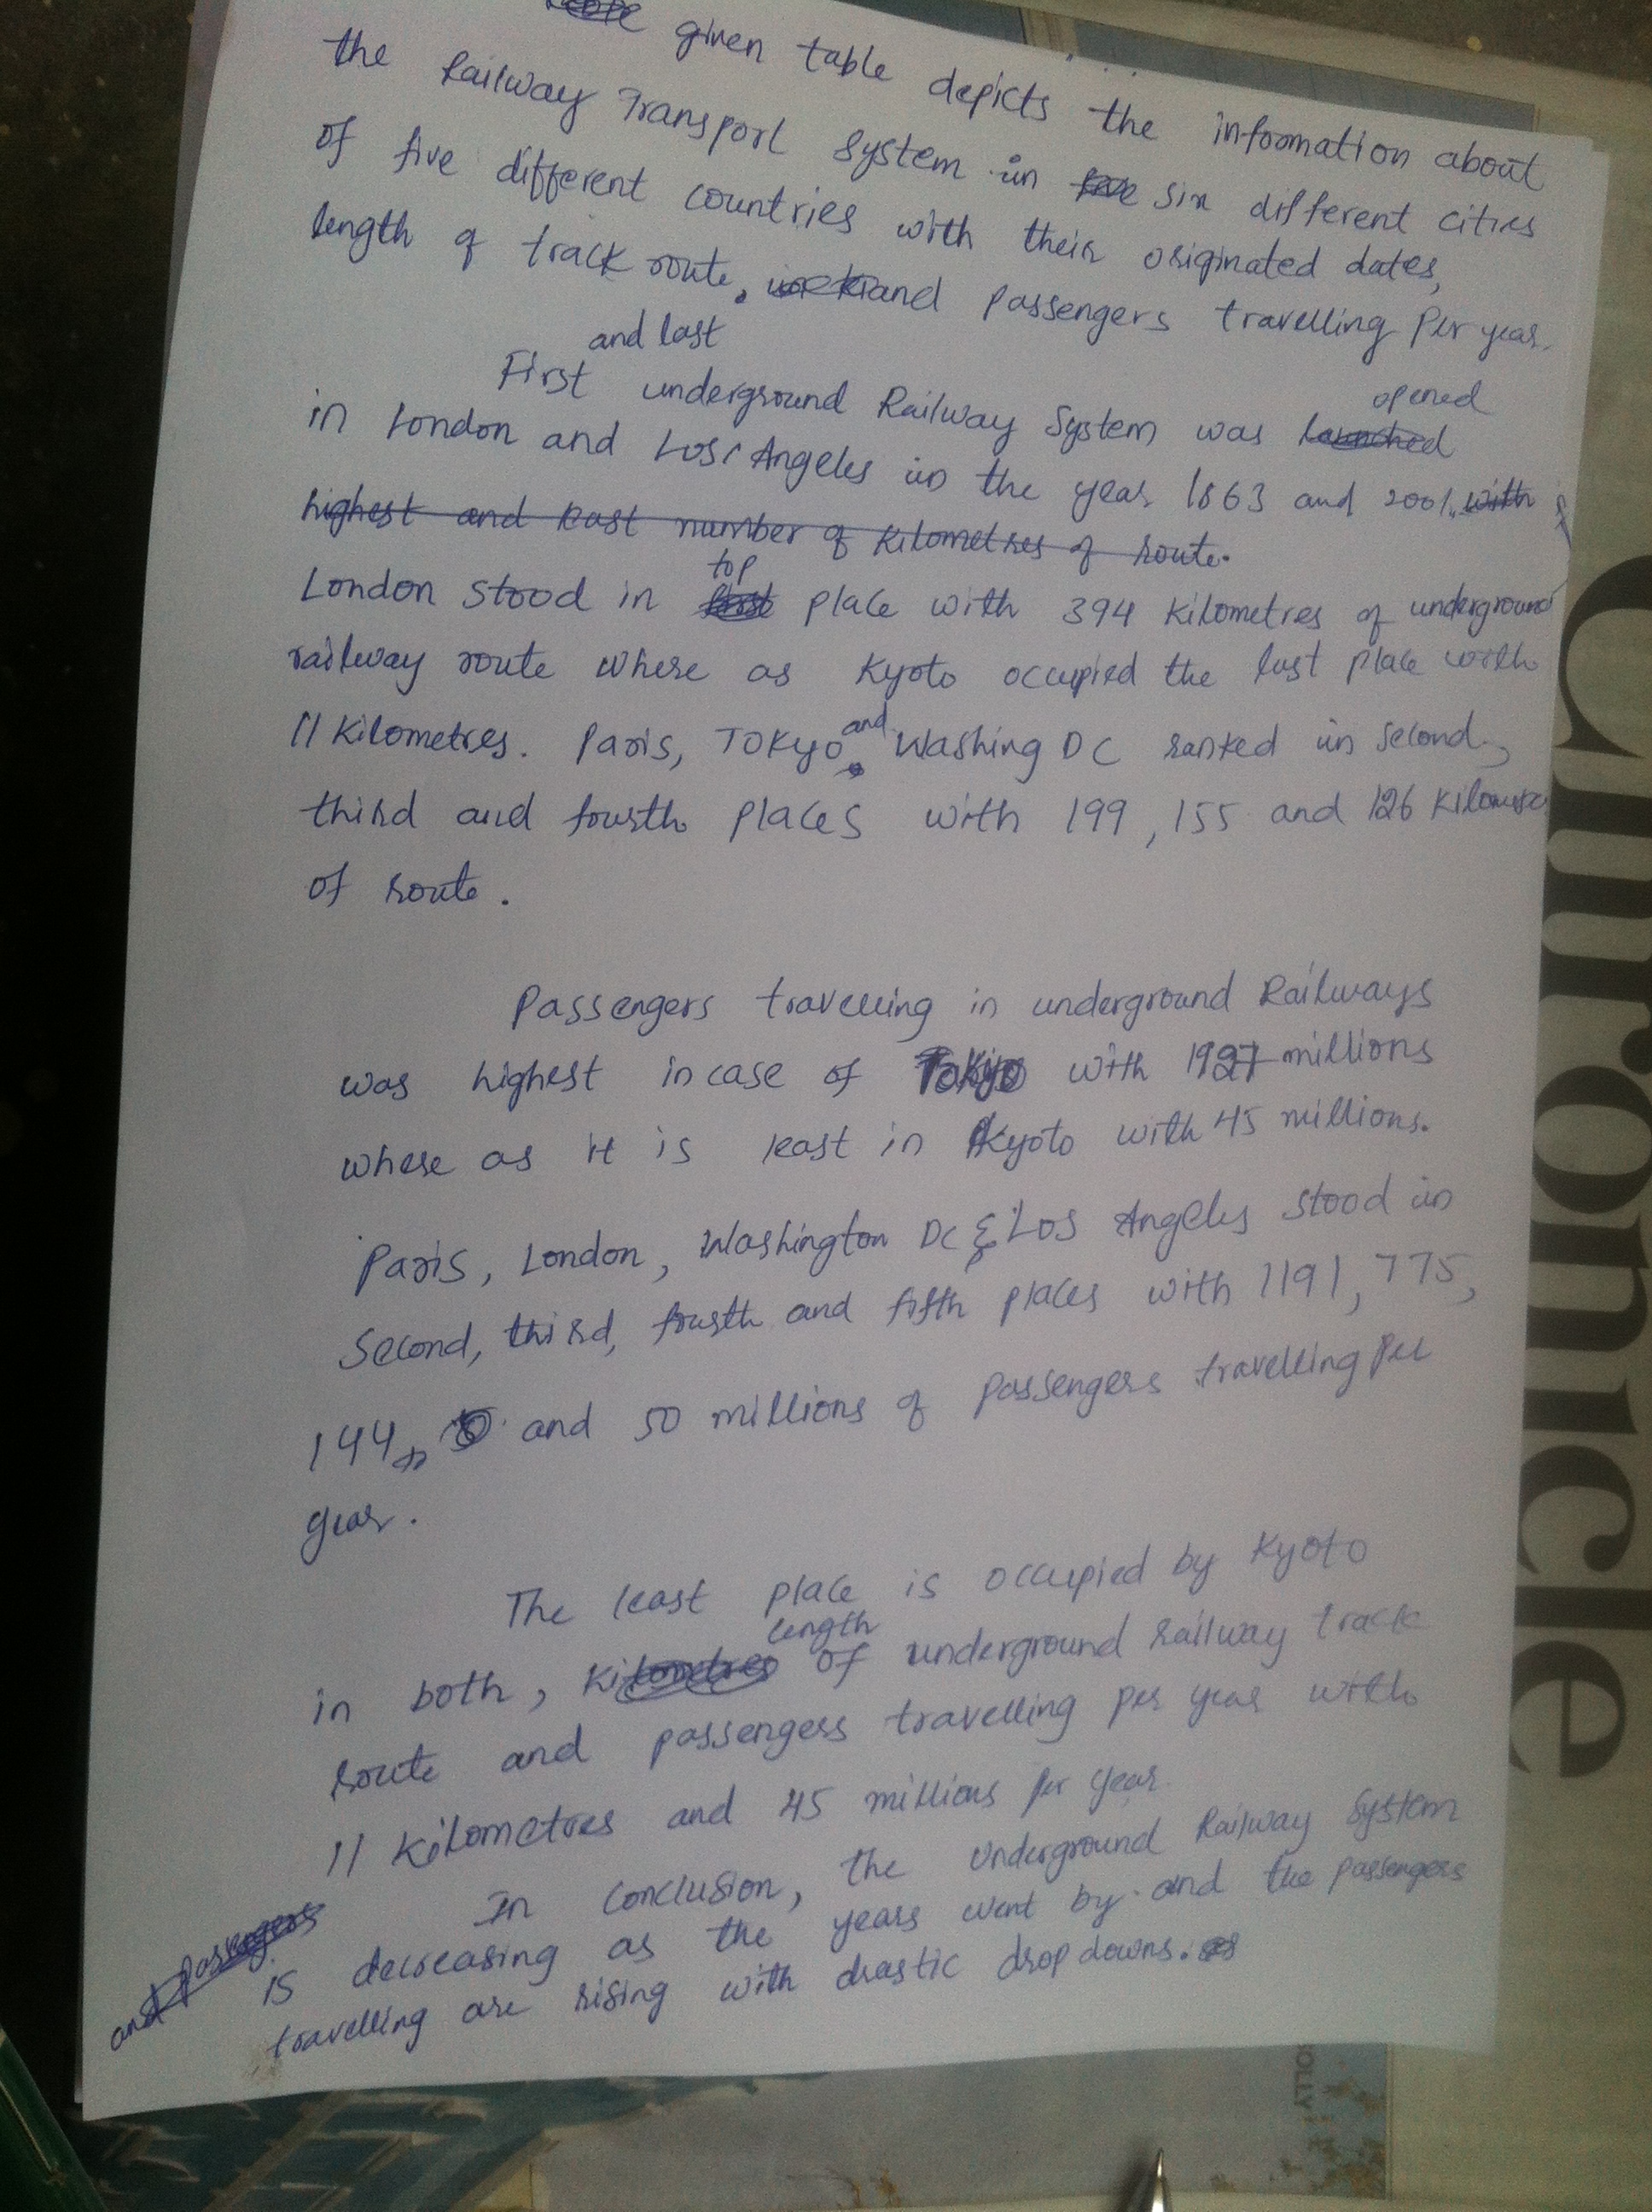 given table depicts the information about
the Railway Transport System in six different cities
of five different countries with their originated dates,
length of track route, and passengers travelling per year.
and last
First underground Railway System was opened
in London and Los Angeles in the year 1863 and 2001.
highest and least number of kilometres of route.
London stood in top place with 394 kilometres of underground
railway route where as Kyoto occupied the last place with
11 kilometres. Paris, Tokyo and Washing DC ranked in second,
third and fourth places with 199, 155 and 126
of route.
Passengers travelling in underground Railways
was highest incase of Tokyo with 1927 millions
where as it is least in Kyoto with 45 millions.
Paris, London, Washington DC & Los Angeles stood in
Second, third, fourth and fifth places with 1191, 775,
144, and 50 millions of passengers travelling per
year.
The least place is occupied by Kyoto
length
in both, of underground railway track
route and passengers travelling per year with
11 kilometres and 45 millions per year.
In conclusion, the Underground Railway System
is decreasing as the years went by and the passengers
and passengers
travelling are rising with drastic drop downs.
Chronicle
OLLY